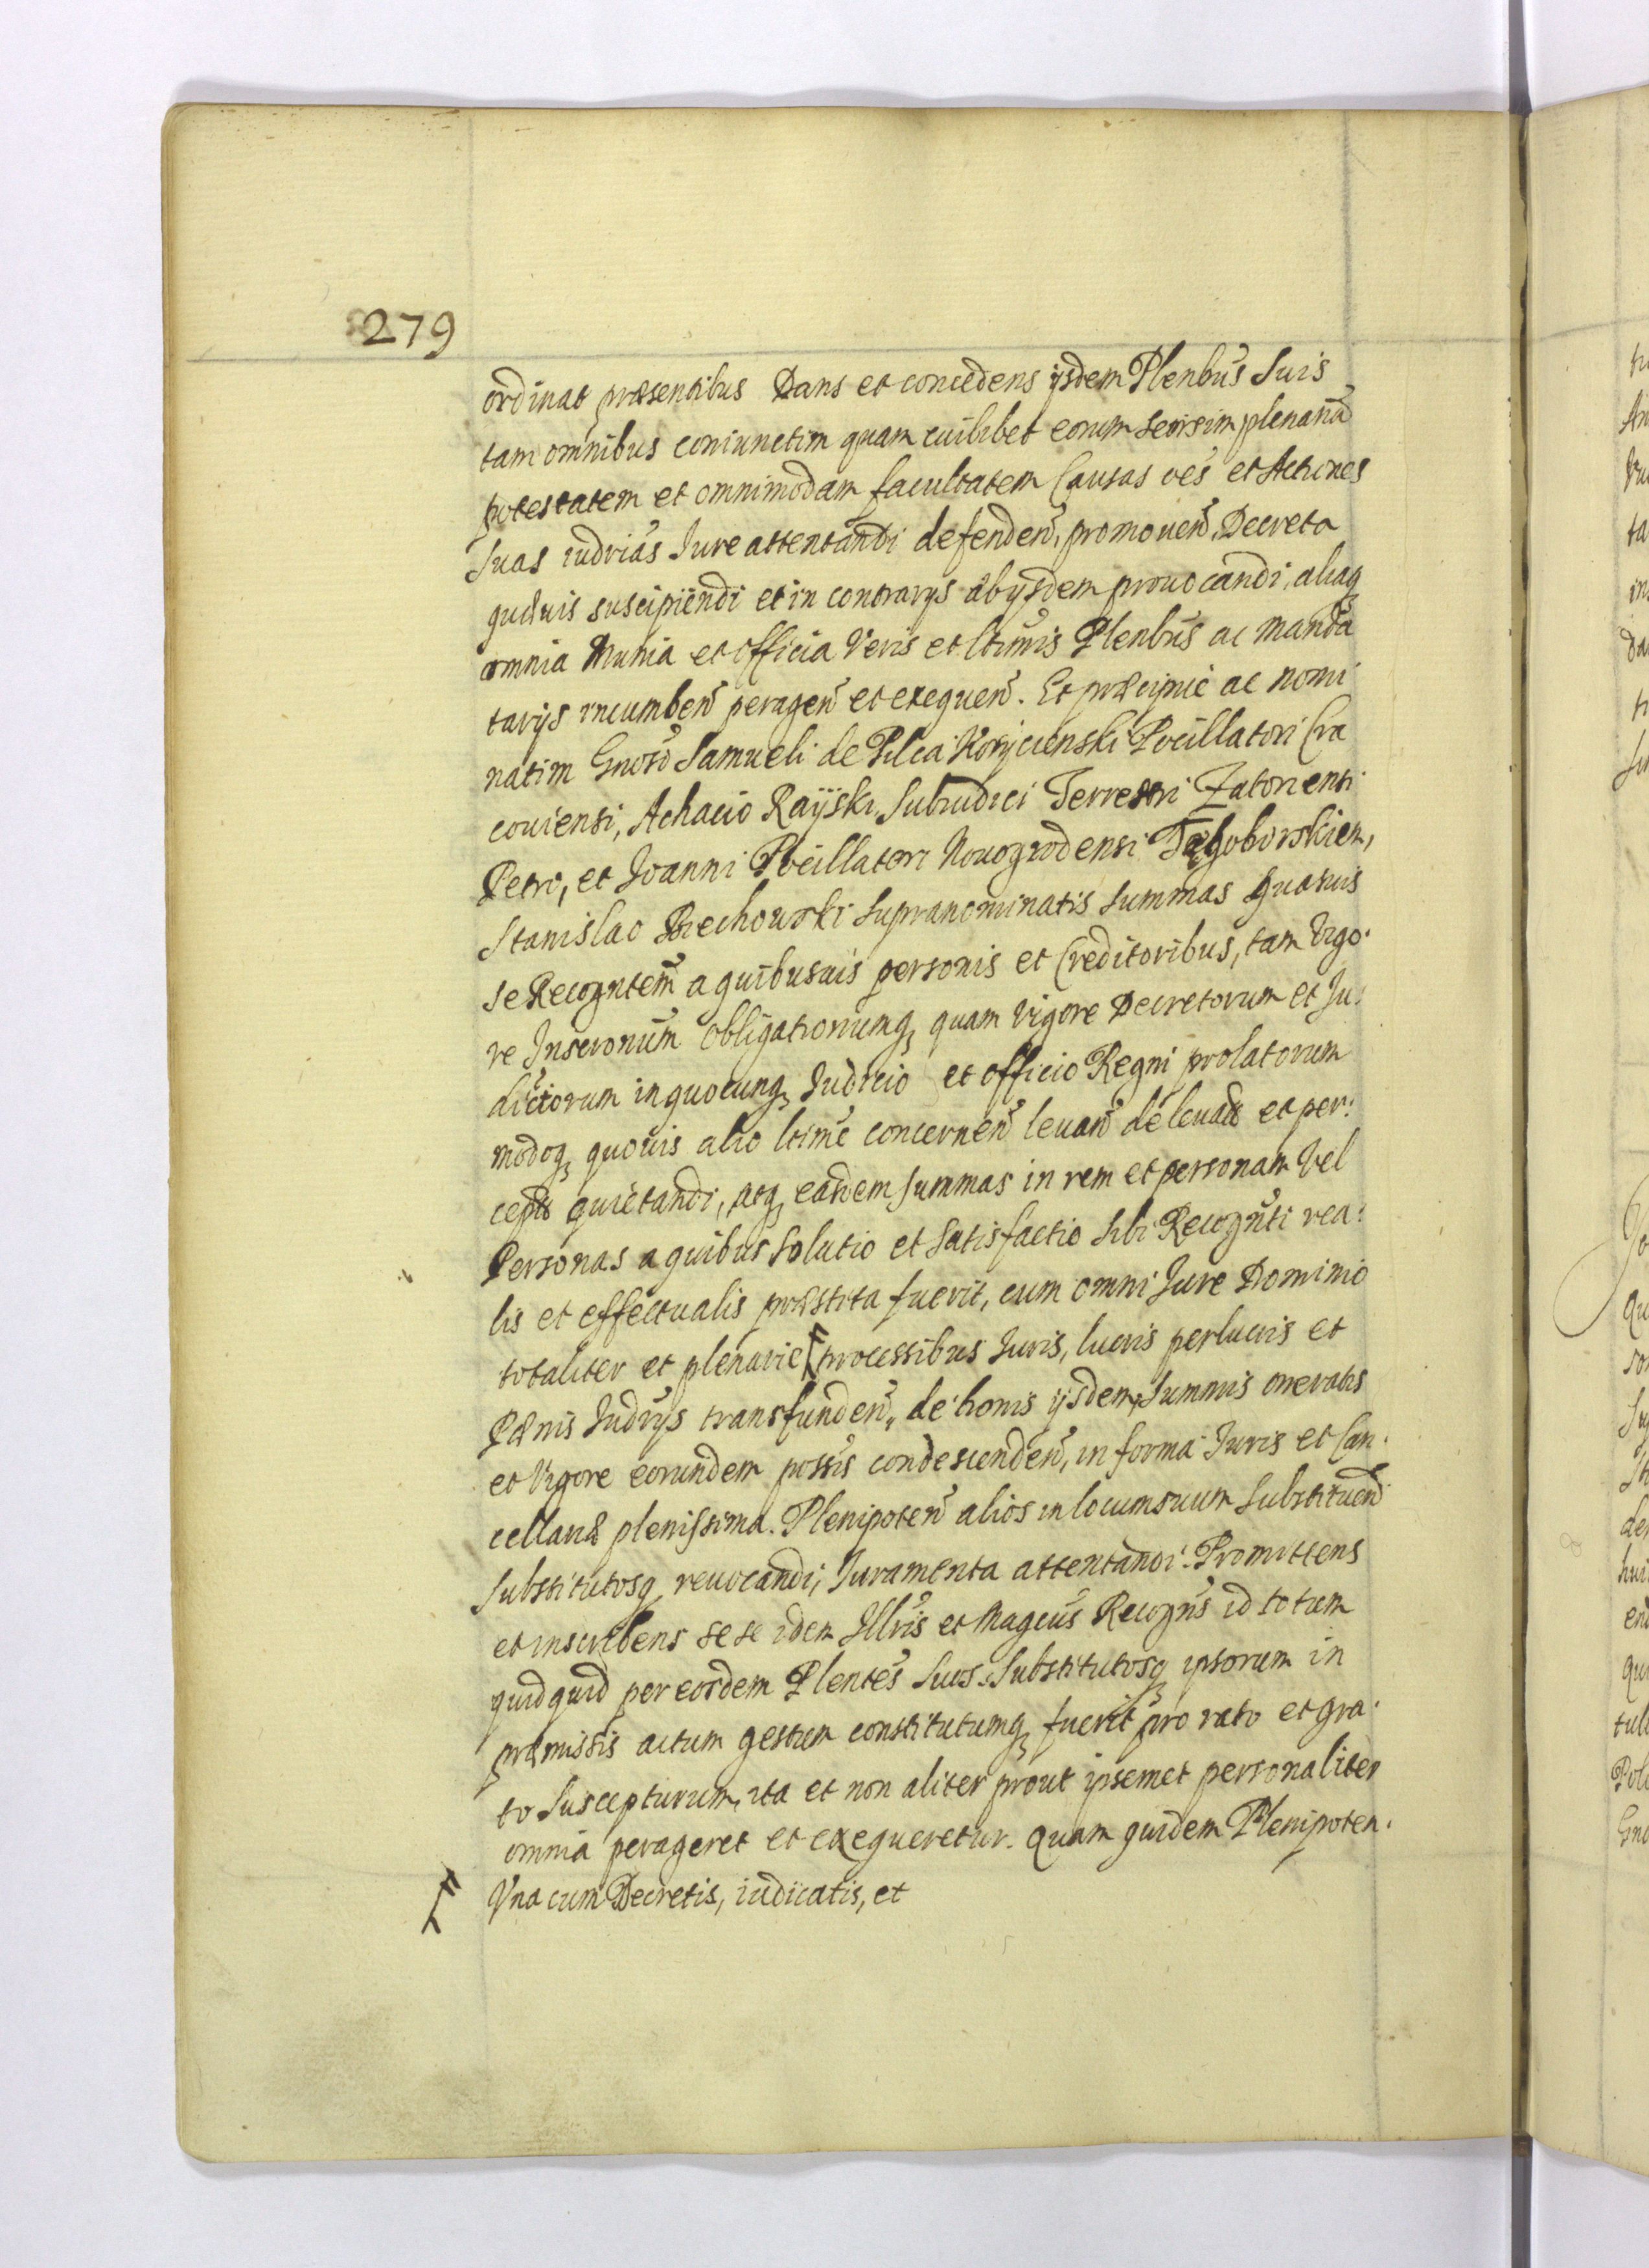 279
ordinat præsentibus Dans et concedens ijsdem Plenbus Suis
tam omnibus coniunctim quam cuilibet eorum seorsim plenariā
potestatem et omnimodam facultatem Causas oēs et Actiones
Suas iudrias Jure attentandi defenden, promouen, Decreta
quæuis suscipiendi et in contrarijs ab ijsdem prouocandi, aliaq
omnia Munia et officia Veris et ltimis Plenbus ac Manda
tarijs incumben peragen et exequen. Et præcipue ac nomi
natim Gnoso Samueli de Pilca Korycienski Pocillatori Cra
couiensi, Achacio Rayski Subiudici Terrestri Zatoriensi
Petro, et Joanni Pocillatori Nouogrodensi Tęgoborskiem,
Stanislao Biechowski supranominatis summas quasuis
se Recogntem a quibusuis personis et Creditoribus, tam Vigo.
re Inscronum obligationumq, quam Vigore Decretorum et Ju:
dictorum in quocunq Judicio et officio Regni prolatorum
modoq quouis alio ltime concernen leuan de leuatis et per:
ceptis quietandi, atq easdem summas in rem et personam Vel
Personas a quibus Solutio et Satisfactio sibi Recognti rea:
lis et effectualis præstita fuerit, cum omni Jure Dominio
totaliter et plenarie processibus Juris, lucris perlucris et
Pænis Judrijs transfunden, de bonis ijsdem Summis oneratis
et Vigore eorundem possis condescenden, in forma Juris et Can.
cellariæ plenissima. Plenipoten alios in locum suum Substituen
Substitutosq reuocandi, Juramenta attentandi. Promittens
et inscribens sese idem Illris et Magcus Recogns id totum
quidquid per eosdem Plentes Suos Substitutosq ipsorum in
præmissis actum gestum constitutumq fuerit pro rato et gra.
to Suscepturum, ita et non aliter prout ipsemet personaliter
omnia perageret et exequeretur. Quam quidem Plenipoten.
Vna cum Decretis, iudicatis, et